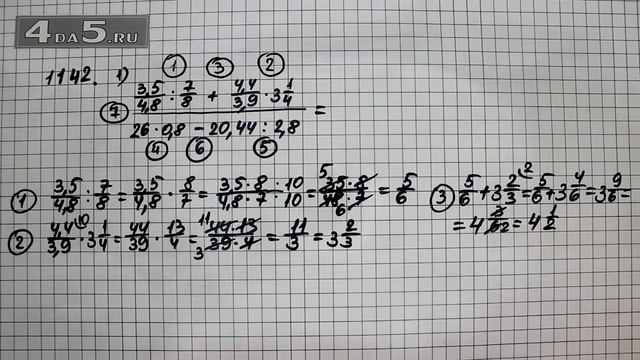 4DA5.RU
1142. 1) (3,5/4,8 : 7/8 + 4,4/3,9 · 3 1/4) / (26 · 0,8 − 20,44 : 2,8) =
① ③ ② ⑦ ④ ⑥ ⑤
① 3,5/4,8 : 7/8 = 3,5/4,8 · 8/7 = 3,5·8·10/4,8·7·10 = 5 35·8/48·7 6 = 5/6
② 4,4/3,9 10 · 3 1/4 = 44/39 · 13/4 = 11 44·13/39·4 3 = 11/3 = 3 2/3
③ 5/6 + 3 2/3 2 = 5/6 + 3 4/6 = 3 9/6 =
= 4 3/6 2 = 4 1/2